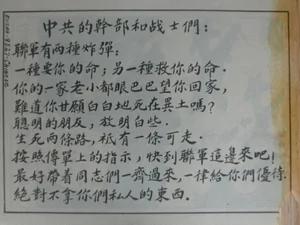 中共的幹部和战士們：
聯軍有两種炸彈：
一種要你的命；另一種救你的命．
你的一家老小都眼巴巴望你回家，
難道你甘願白白地死在異土嗎？
聰明的朋友，放明白些．
生死两條路，祇有一條可走．
按照傳單上的指示，快到聯軍這邊來吧！
最好帶着同志們一齊過來，一律給你們優待．
絕對不拿你們私人的東西．